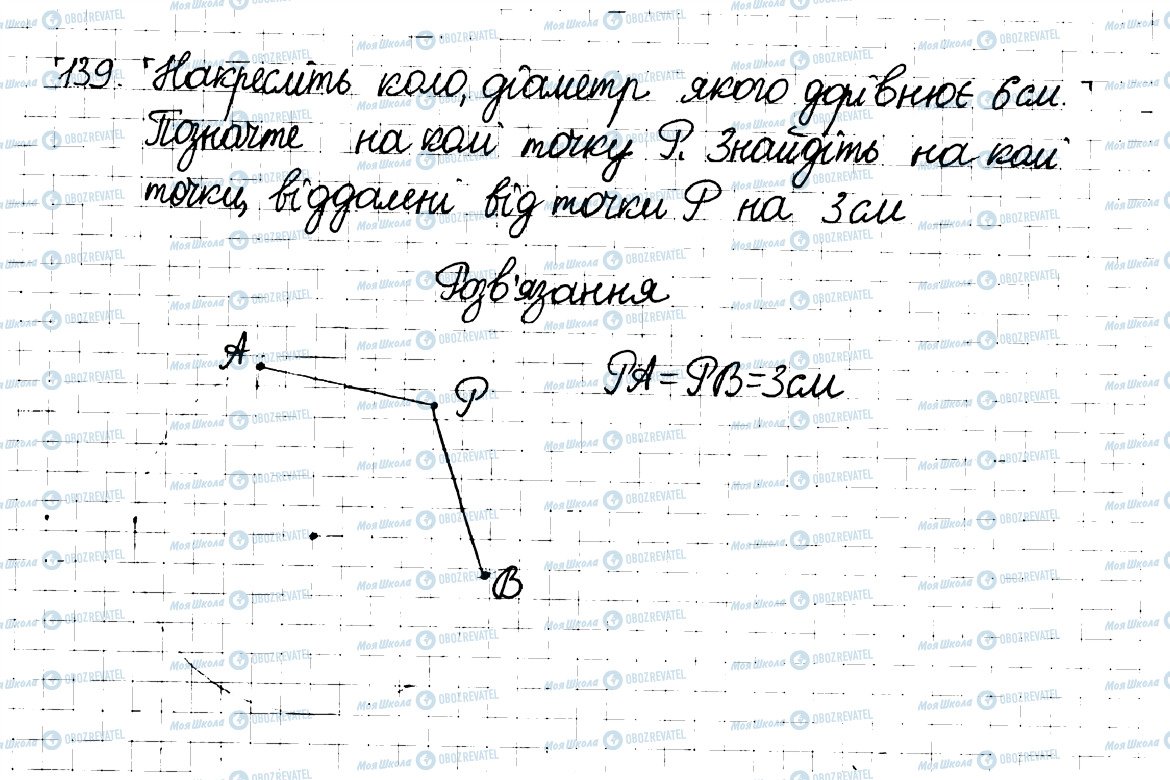 139. Накресліть коло, діаметр якого дорівнює 6 см.
Позначте на колі точку Р. Знайдіть на колі
точки, віддалені від точки Р на 3 см
Розв'язання
А
Р
РА = РВ = 3 см
В
Моя Школа OBOZREVATEL